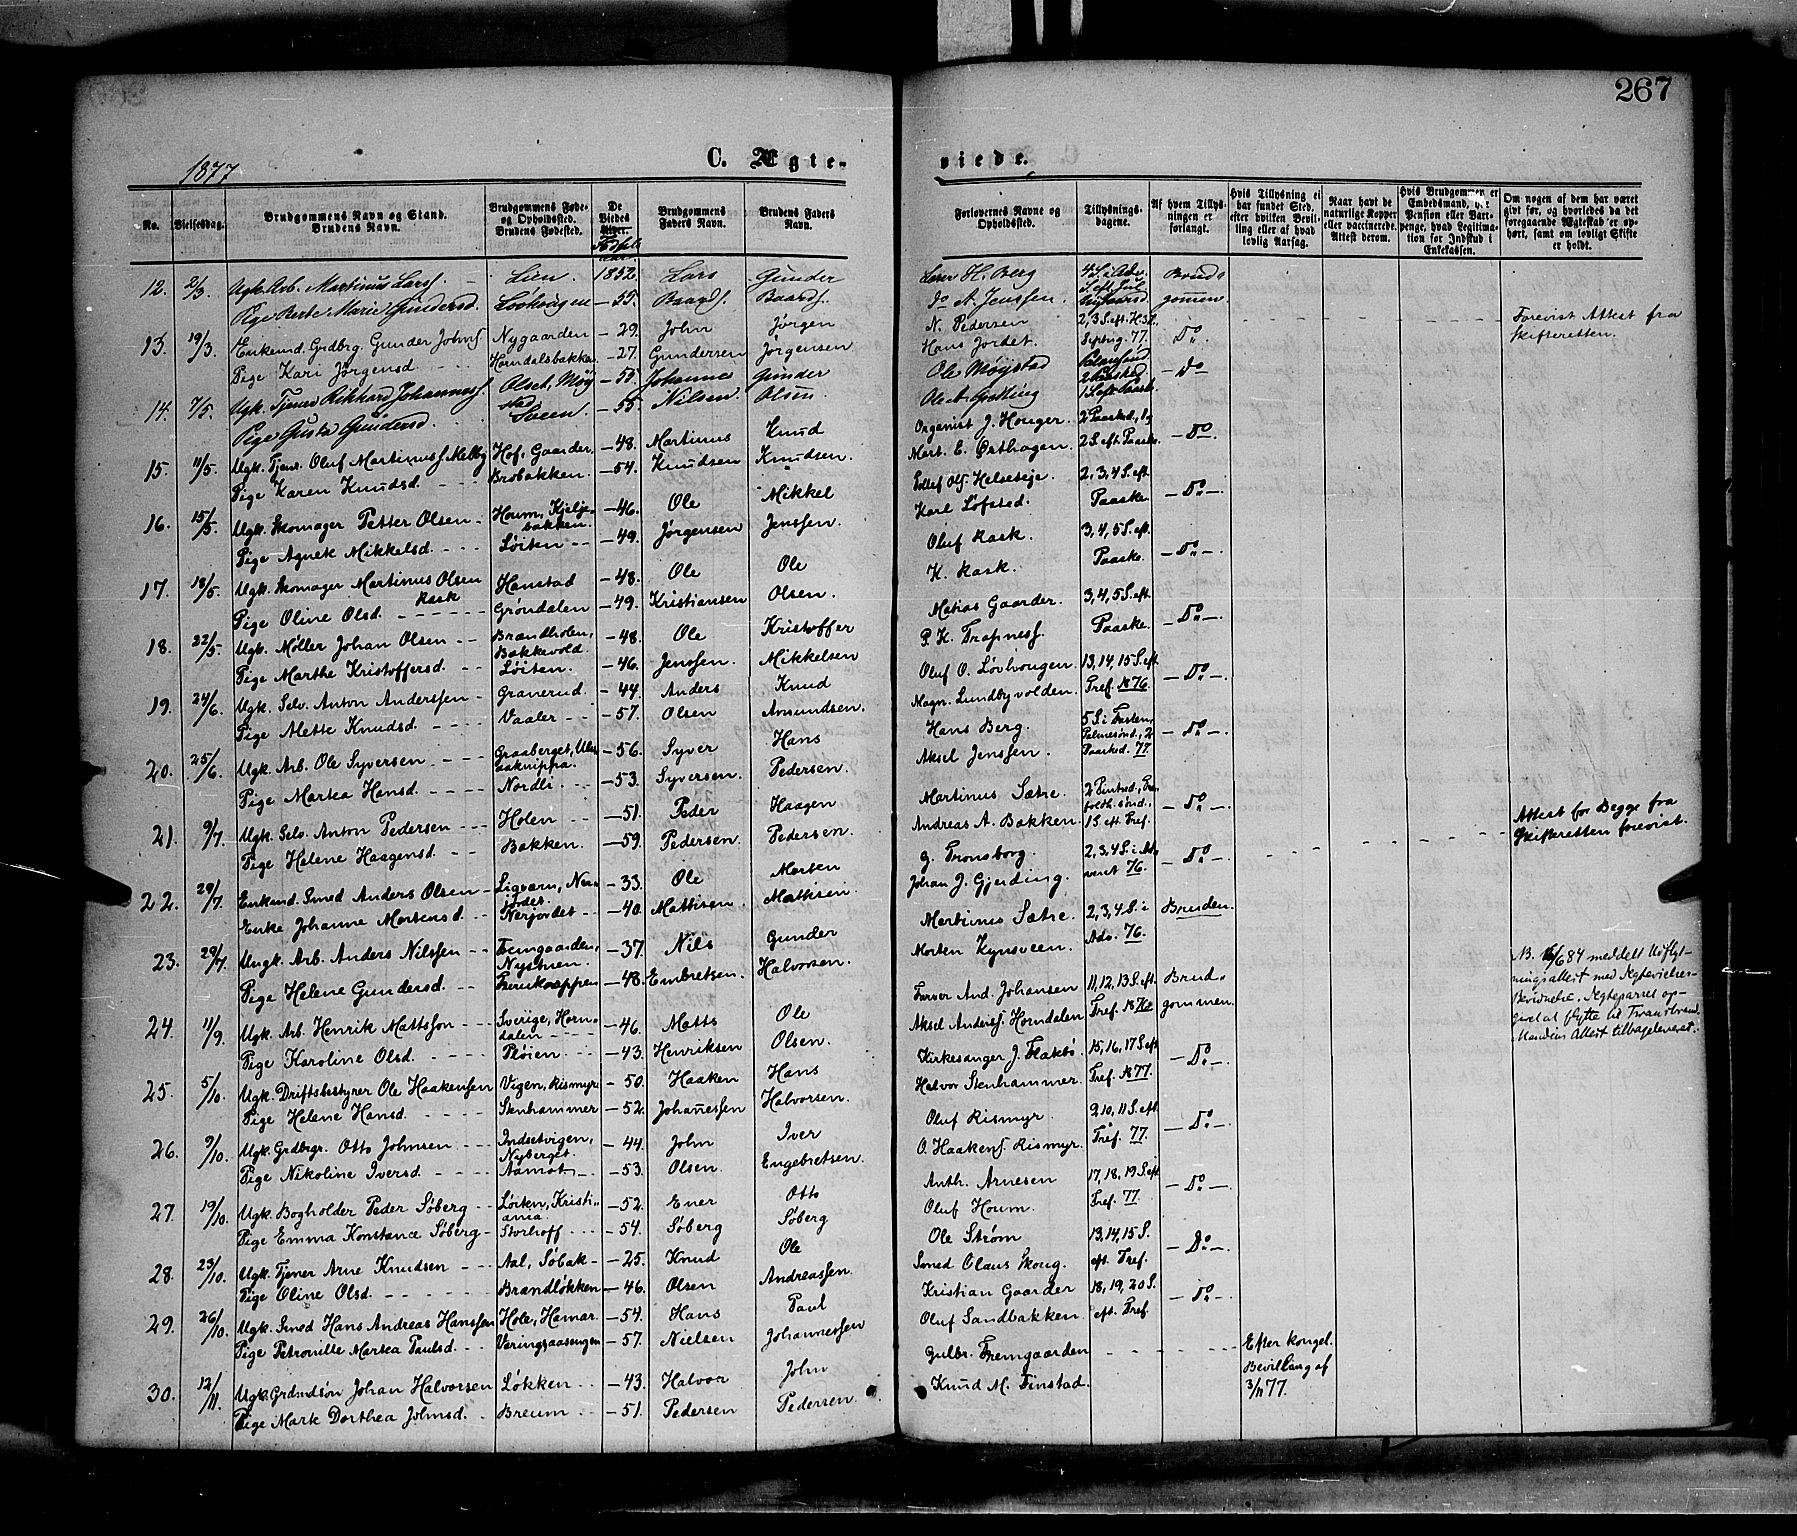 267
1877
C. Ægte-
viede.
No.
Vielsesdag.
Brudgommens Navn og Stand.
Brudens Navn.
Brudgommens Føde-
og Opholdssted.
Brudens Fødested.
De
Viedes
Alder.
Brudgommens
Faders Navn.
Brudens Faders
Navn.
Forlovernes Navne og
Opholdssted.
Tillysnings-
dagene.
Af hvem Tillys-
ningen er
forlangt.
Hvis Tillysning ei
har fundet Sted,
efter hvilken Bevil-
ling eller af hvad
lovlig Aarsag.
Naar havt de
naturlige Kopper
eller vaccinerede.
Attest derom.
Hvis Brudgommen er
Embedsmand, har
Pension eller Var-
penge, hvad Legitima-
tion for Indskud i
Enkekassen.
Om nogen af dem har været
gift før, og hvorledes da det
foregaaende Ægteskab er op-
hørt, samt om lovligt Skifte
er holdt.
12. 2/3. Ugk. Arb. Martinus Larss. Lien. 1852. Lars Gunder
Pige Berte Marie Gundersd. Løvhaugen – 55. Baards. Baards.
Lærer H. Berg
do A. Jenssen.
Brud-
gommen
13. 19/3. Enkemd. Grdbrg. Gunder Johns. Nygaarden – 29. John Jørgen
Pige Kari Jørgensd. Horndalsbakken – 27. Gundersen Jørgensen
N. Pedersen 2, 3 S. eft. H3K.
Hans Jordet. 77. Do.
Forevist Attest fra
Skifteretten.
14. 7/5. Ugk. Tjener Rikhard Johanness. Olset, Møy
stad – 55. Johannes Gunder
Pige Gusta Gundersd. Sveen. – 55. Nilsen. Olsen.
Ole Møystad
Ole A. Grøtting 1 S. eft. Paask. – Do
15. 11/5. Ugk. Tjen. Oluf Martinuss. Melby Hof, Gaarder, – 48. Martinus Knud
Pige Karen Knudsd. Brobakken. – 54. Knudsen Knudsen.
Organist J. Honger. 2 Paaskd., 1 og
Mart. E. Østhagen. 2 S. eft. Paaske. – Do –
16. 15/5. Ugk. Skomager Petter Olsen – Houm, Kjelje-
bakken. – 46. Ole Mikkel
Pige Agnek Mikkelsd. Løiten – 49. Jørgensen Jenssen.
Ols. Helseteje. 2, 3, 4 S. eft.
Karl Løfsted. Paaske. – Do. –
17. 18/5. Ugk. Skomager Martinus Olsen Rask Hanstad – 48. Ole Ole
Pige Oline Olsd. Grøndalen – 49. Kristiansen Olsen.
Oluf Rask. 3, 4, 5 S. eft.
K. Rask. Paaske. – Do. –
18. 22/5. Ugk. Møller Johan Olsen – Brændholen,
Bakkevold. – 48. Ole Kristoffer
Pige Marthe Kristoffersd. Løiten. – 46. Jenssen. Mikkelsen
Matias Gaarder. 3, 4, 5 S. eft.
P. K. Trapness. Paaske. – Do. –
19. 24/6. Ugk. Selv. Anton Anderssen – Granerud. – 44. Anders Knud
Pige Alette Knudsd. Vaaler – 57. Olsen Amundsen.
Oluf O. Løvhougen. 13, 14, 15 S. eft.
Magn. Lundbyvolden. Tref. 1876. – Do. –
20. 25/6. Ugk. Arb. Ole Syversen. Graaberget, Ulvs
aaknippa. – 56. Syver Hans
Pige Martea Hansd. Nordli – 53. Syversen. Pedersen.
Hans Berg. 5 S. i Fasten,
Palmesønd., 2
Aksel Jenssen. Paaskd. 77. – Do. –
21. 9/7. Ugk. Selv. Anton Pedersen Holen – 51. Peder Haagen
Pige Helene Haagensd. Bakken. – 59. Pedersen. Pedersen.
Martinus Sætre. 2 Pintsd., Tre
foldh.sønd.,
Andreas A. Bakken. 1 S. eft Tref. – Do. –
22. 29/7. Enkemd. Smed Anders Olsen – Ligvarn, Ner-
jordet. – 33. Ole Morten
Enke Johanne Mortensd. Nerjordet – 40. Mattisen. Mattisen.
G. Tronsborg. 2, 3, 4 S. i Ad-
Johan J. Gjerding. vent 76. – Do. –
Attest for Begge fra
Skifteretten forevist.
23. 29/7. Ungk. Arb. Anders Nilssen – Fremgaarden,
Nystuen. – 37. Nils Gunder
Pige Helene Gundersd. – 48. Embretsen. Halvorsen.
Martinus Sætre. 2, 3, 4 S. i
Morten Kynsveen. Adv. 76. Bruden.
24. 11/9. Ugk. Arb. Henrik Mattsson – Sverige, Horn-
dalen – 46. Matts Ole
Pige Karoline Olsd. Pløien. – 43. Henriksen Olsen.
Farver And. Johansen 11, 12, 13 S. eft.
Aksel Anderss. Horndalen Tref. Brud-
gommen.
NB. 16/6 84 meddelt Udflyt-
ningsattest med Ægtevielses-
Bevidnelse. Ægteparret op-
givet at flytte til Trandstrand.
Mandens Attest tilbageleveret.
25. 5/10. Ugk. Driftsbestyrer Ole Haakenssen Vigen, Rismyr – 50. Haaken Hans
Pige Helene Hansd. Stenhammer – 52. Johanessen Halvorsen.
Kirkesanger J. Flakbø. 15, 16, 17 S. eft
Halvor Stenhammer. Tref. 1877. – Do. –
26. 9/10. Ugk. Grdbrgr. Otto Johnsen – Indsetvigen,
Nyberget. – 44. John Iver
Pige Nikoline Iversd. Aamot – 53. Olsen. Engebretsen.
Oluf Rismyr. 9, 10, 11 S. eft.
O. Haakens. Rismyr. Tref. 77. – Do. –
27. 19/10. Ugk. Bogholder Peder Søberg – Løiten, Kristi-
ania – 52. Ener Otto
Pige Emma Konstance Søberg – Storhoff – 54. Søberg Søberg
Anth. Arnesen 17, 18, 19 S. eft
Oluf Houm. Tref. 77. – Do. –
28. 23/10. Ugk. Tjener Arne Knudsen Aal, Søbak – 25. Knud Ole
Pige Oline Olsd. Brandløkken – 46. Olsen Andreassen.
Ole Strøm 13, 14, 15 S.
Smed Olaus Skoug. eft. Tref. – Do. –
29. 26/10. Ugk. Smed Hans Andreas Hanssen Hole, Hamar. – 54. Hans Paul
Pige Petronille Martea Paulsd. Væringsaasengen – 57. Nielsen Johannessen
Kristian Gaarder 18, 19, 20 S.
Oluf Sandbakken. eft. Tref – Do. –
30. 12/11. Ugk. Grdmdsøn Johan Halvorsen Løkken – 43. Halvor John
Pige Mark Dorthea Johnsd. Breum – 51. Pedersen Pedersen.
Gulbr. Fremgaarden
Knud M. Finstad.
Efter kongel.
Bevilling af
3/11 77.